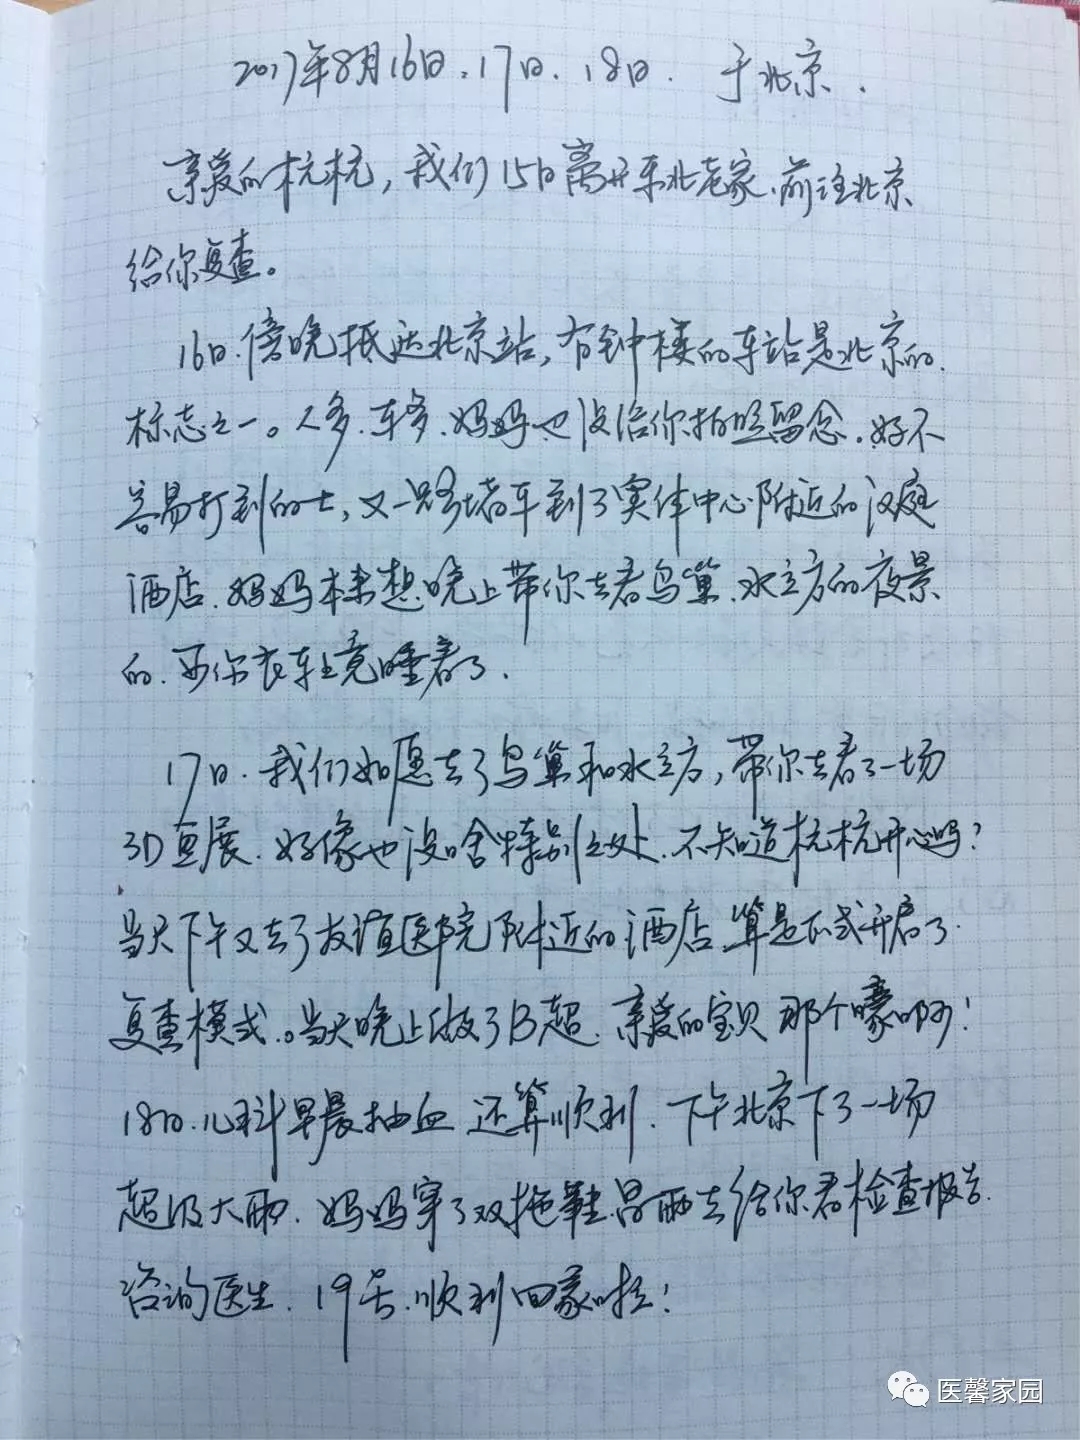 2017年8月16日、17日、18日. 于北京.
亲爱的杭杭，我们15日离开东北老家、前往北京
给你复查。
16日.傍晚抵达北京站，有钟楼的车站是北京的
标志之一。人多、车多、妈妈也没给你拍照留念。好不
容易打到的士，又一路堵车到了实体中心附近的汉庭
酒店、妈妈本来想晚上带你去看鸟巢、水立方的夜景
的、可你在车上竟睡着了.
17日、我们如愿去了鸟巢和水立方，带你去看了一场
3D画展、好像也没啥特别之处、不知道杭杭开心吗？
当天下午又去了友谊医院附近的酒店、算是正式开启了
复查模式。当天晚上做了B超、亲爱的宝贝 那个嚎啊！
18日、儿科早晨抽血 还算顺利、下午北京下了一场
超级大雨、妈妈穿了双拖鞋、冒雨去给你看检查报告、
咨询医生、19号、顺利回家啦！
医馨家园